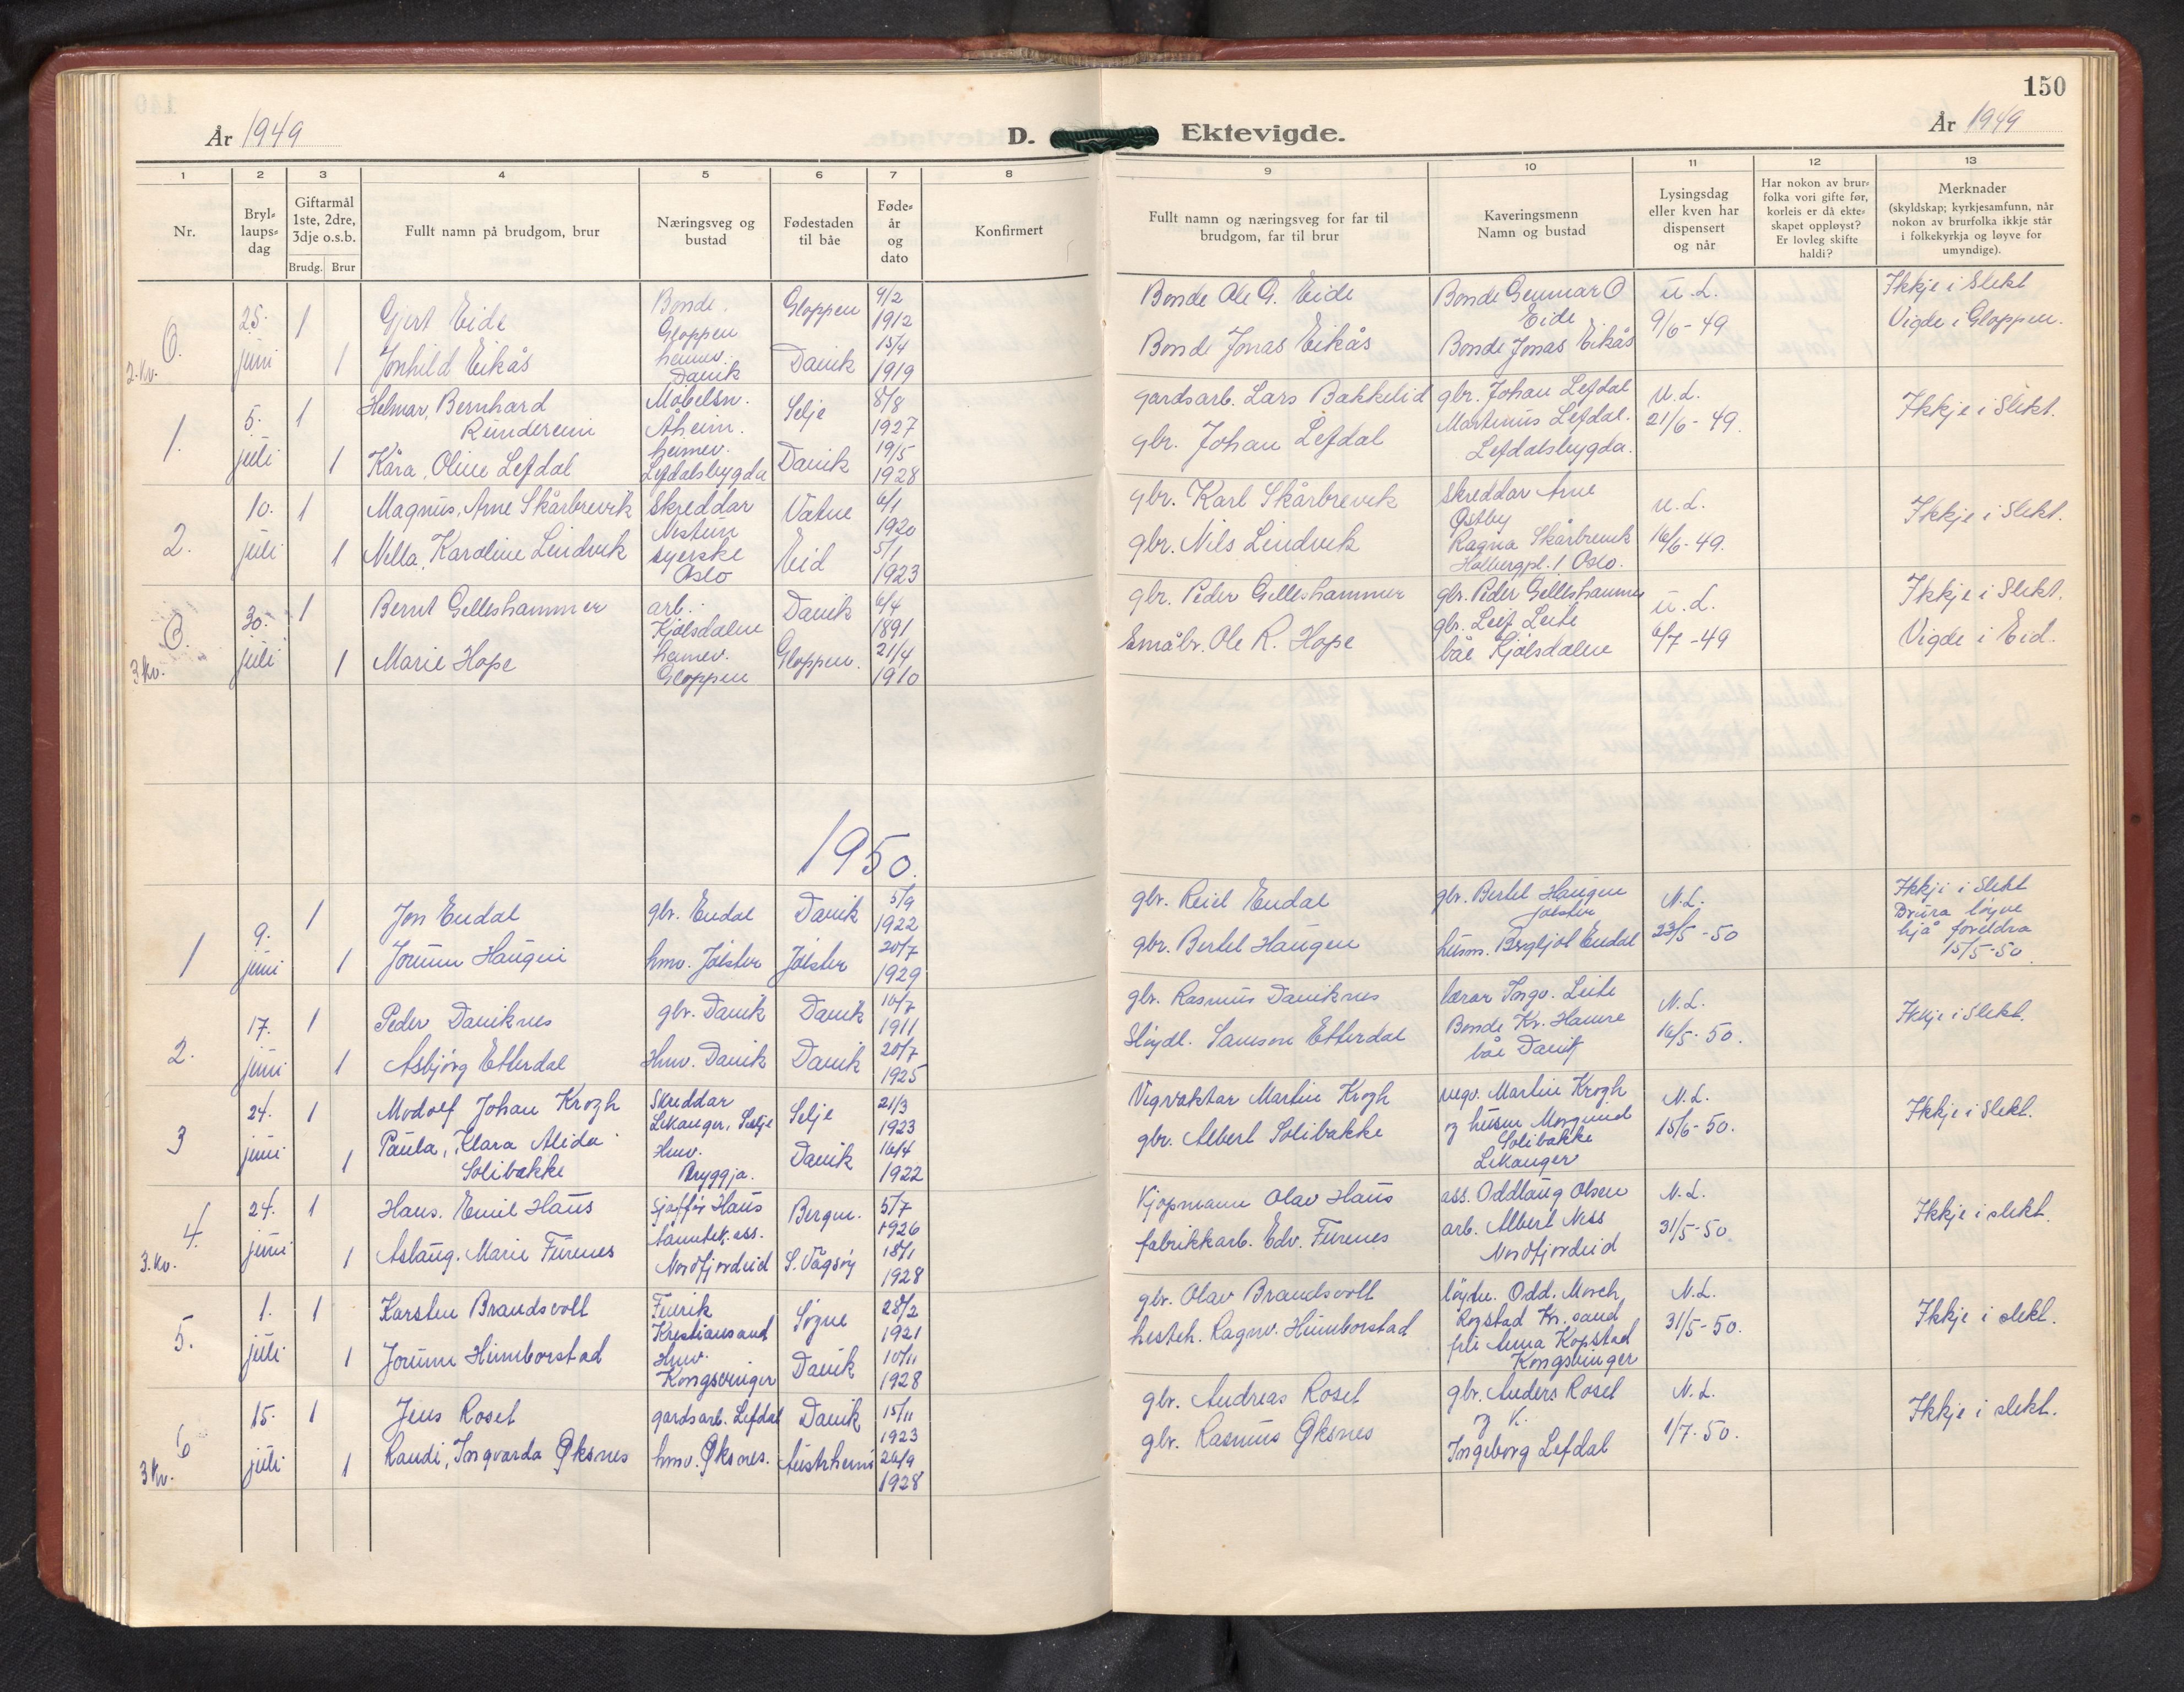 150
År 1949
D.
Ektevigde.
År 1949
1
2
3
4
5
6
7
8
9
10
11
12
13
Nr.
Bryl-
laups-
dag
Giftarmål
1ste, 2dre,
3dje o.s.b.
Brudg. Brur
Fullt namn på brudgom, brur
Næringsveg og
bustad
Fødestaden
til båe
Føde-
år
og
dato
Konfirmert
Fullt namn og næringsveg for far til
brudgom, far til brur
Kaveringsmenn
Namn og bustad
Lysingsdag
eller kven har
dispensert
og når
Har nokon av brur-
folka vori gifte før,
korleis er då ekte-
skapet oppløyst?
Er lovleg skifte
haldi?
Merknader
(skyldskap; kyrkjesamfunn, når
nokon av brurfolka ikkje står
i folkekyrkja og løyve for
umyndige).
0.
2. kv.
25.
juni
1
Gjert Eide
Bonde,
Gloppen
Gloppen
9/2
1912
1
Jonhild Eikås
heimev.
Davik
Davik
15/4
1919
Bonde Ole G. Eide
Bonde Jonas Eikås
Bonde Gunnar O
Eide
Bonde Jonas Eikås
u. L.
9/6 - 49
Ikkje i Slekt
Vigde i Gloppen.
1.
5.
juli
1
Helmar, Bernhard
Rundereim
Møbelsn.
Åheim.
Selje
8/8
1927
1
Kåra, Oline Lefdal
heimev.
Lefdalsbygda
Davik
19/5
1928
gardsarb. Lars Bakkelid
gbr. Johan Lefdal
gbr. Johan Lefdal
Martinus Lefdal.
Lefdalsbygda.
u. L.
21/6 - 49.
Ikkje i Slekt.
2.
10.
juli
1
Magnus, Arne Skårbrevik
Skreddar
Nestun
Vatne
6/1
1920
1
Nella, Karoline Lindvik
syerske
Oslo
Eid
5/1
1923
gbr. Karl Skårbrevik
gbr. Nils Lindvik
Skreddar Arne
Østby
Ragna Skårbrevik
Holbergpl. 1 Oslo.
u. L.
16/6 - 49.
Ikkje i Slekt.
0.
3 kv.
30.
juli
1
Bernt Gelleshammer
arb.
Kjølsdalen
Davik
6/4
1891
1
Marie Hope
heimev.
Gloppen
Gloppen.
21/4
1910
gbr. Peder Gilleshammer
Småbr. Ole R. Hope
gbr. Peder Gilleshammer
gbr. Leif Leite
båe Kjølsdalen
u. L.
6/7 - 49
Ikkje i Slekt.
Vigde i Eid.
1950.
1
9.
juni
1
Jon Endal
gbr. Endal
Davik
5/9
1922
1
Jorunn Haugen
hmv. Jølster
Jølster
20/7
1929
gbr. Reiel Endal
gbr. Bertel Haugen
gbr. Bertel Haugen
Jølster
husm. Bergljot Endal
N. L.
23/5 - 50
Ikkje i Slekt
Brura løyve
hjå foreldra
15/5-50.
2.
17.
juni
1
Peder Daviknes
gbr. Davik
Davik
10/7
1911
1
Asbjørg Etterdal
Hmv. Davik
Davik
20/7
1925
gbr. Rasmus Daviknes
Sløydl. Samson Etterdal
lærar Ingv. Leite
Bonde Kr. Hamre
båe Davik
N. L.
16/5 - 50.
Ikkje i Slekt.
3
24.
juni
1
Modolf Johan Krogh
Skreddar
Leikanger, Selje
Selje
21/3
1923
1
Paula, Klara Alida
Solibakke
Hmv.
Bryggja.
Davik
16/4
1922
Vegvaktar Martin Krogh
gbr. Albert Solibakke
vegv. Martin Krogh
og husm Morgund
Solibakke
Leikanger
N. L.
15/6 - 50.
Ikkje i Slekt.
4.
3. kv.
24.
juni
1
Hans. Emil Haus
sjåfør Haus
Bergen.
5/7
1926
1
Aslaug. Marie Furenes
tannlek. ass.
Nordfjordeid
S. Vågsøy
18/1
1928
Kjøpmann Olav Haus
fabrikkarb. Edv. Furenes
ass. Oddlaug Olsen
arb. Albert Ness
Nordfjordeid
N. L.
31/5-50
Ikkje i slekt.
5.
1.
juli
1
Karsten Brandsvoll
Fenrik
Kristiansand
Søgne
28/2
1921
1
Jorunn Hjmborstad
Hmv.
Kongsvinger
Davik
10/11
1928
gbr. Olav Brandsvoll
hesteh. Ragnv. Himborstad
løytn. Odd. Morch,
Rogstad Kr. sand
frk Anna Kopstad
Kongsvinger
N. L.
31/5-50.
Ikkje i slekt.
6
3 kv.
15.
juli
1
Jens Roset
gardsarb. Lefdal
Davik
15/11
1923
1
Randi, Ingvarda Øksnes
hmv. Øksnes.
Austrheim
26/9
1928
gbr. Andreas Roset
gbr. Rasmus Øksnes
gbr. Anders Roset
og k.
Ingeborg Lefdal
N. L.
1/7-50.
Ikkje i slekt.